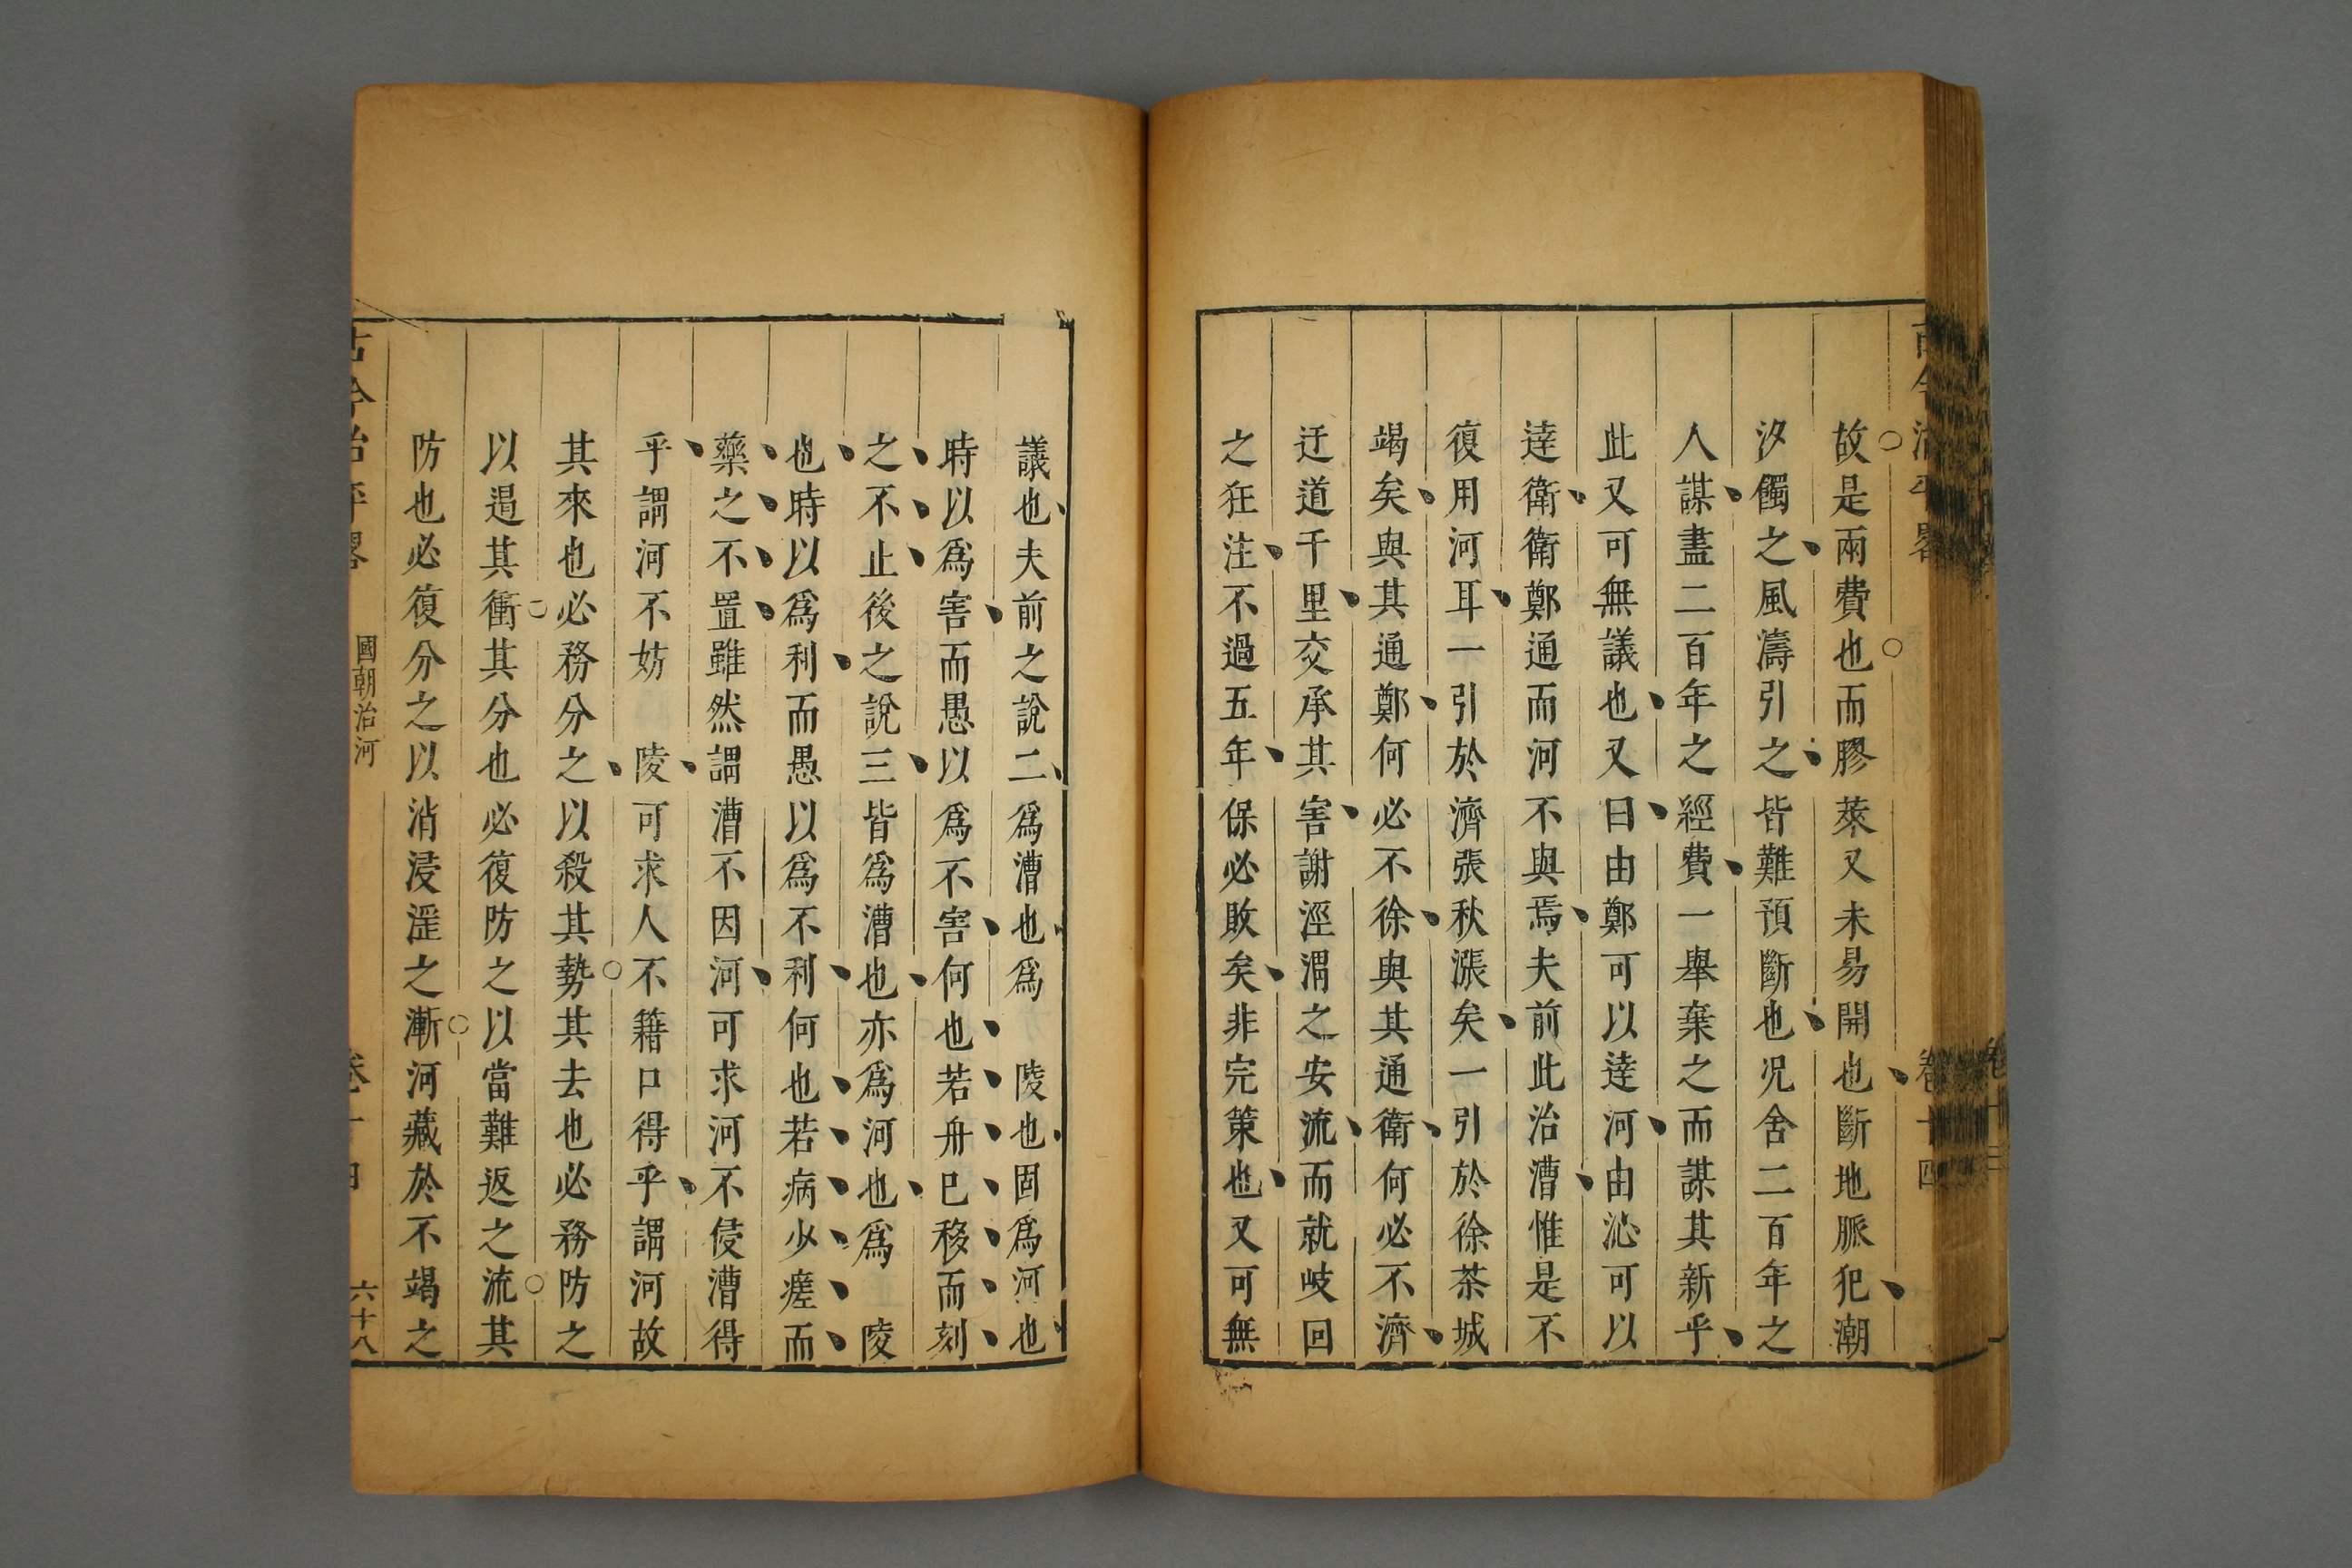 古今治平畧
卷十四
故是兩費也而膠萊又未易開也斷地脈犯潮
汐僩之風濤引之皆難預斷也况舍二百年之
人謀盡二百年之經費一舉棄之而謀其新乎
此又可無議也又曰由鄭可以逹河由沁可以
逹衛衛鄭通而河不與焉夫前此治漕惟是不
復用河耳一引於濟張秋漲矣一引於徐茶城
竭矣與其通鄭何必不徐與其通衛何必不濟
迂道千里交承其害謝溼渭之安流而就岐回
之狂注不過五年保必敗矣非完策也又可無
議也夫前之說二爲漕也爲 陵也固爲河也
時以爲害而愚以爲不害何也若舟已移而刻
之不止後之說三皆爲漕也亦爲河也爲 陵
也時以爲利而愚以爲不利何也若病少瘥而
藥之不置雖然謂漕不因河可求河不侵漕得
乎謂河不妨 陵可求人不籍口得乎謂河故
其來也必務分之以殺其勢其去也必務防之
以遏其衝其分也必復防之以當難返之流其
防也必復分之以消浸淫之漸河藏於不竭之
古今治平畧
國朝治河
卷十四
六十八